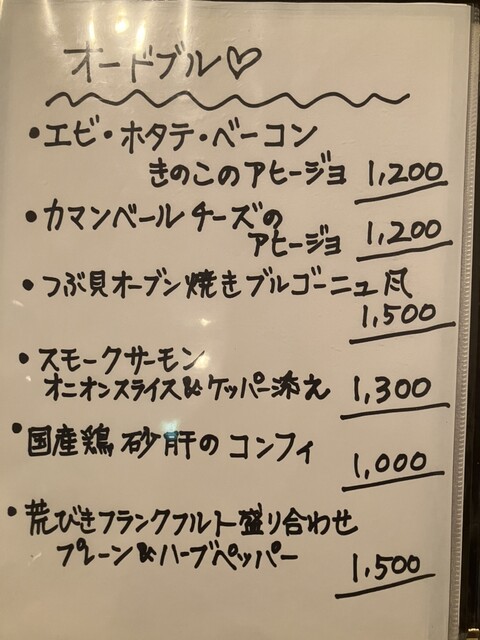 オードブル♡
・エビ・ホタテ・ベーコン
きのこのアヒージョ 1,200
・カマンベールチーズの
アヒージョ 1,200
・つぶ貝オーブン焼きブルゴーニュ風
1,500
・スモークサーモン
オニオンスライス&ケッパー添え 1,300
・国産鶏砂肝のコンフィ
1,000
・荒びきフランクフルト盛り合わせ
プレーン&ハーブペッパー
1,500